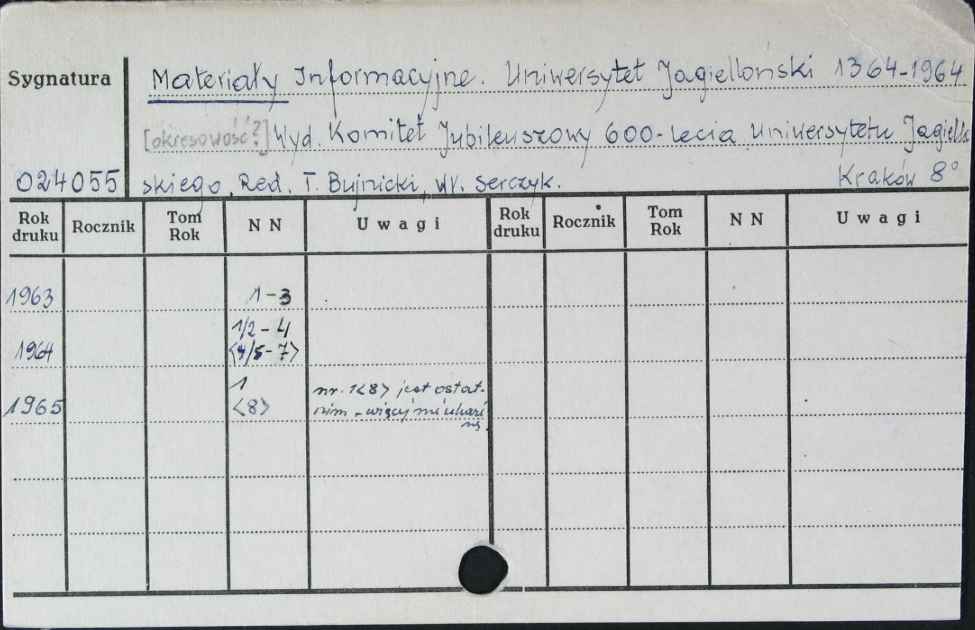 Sygnatura Materiały Informacyjne. Uniwersytet Jagielloński 1364-1964
[okresowość?] Wyd. Komitet Jubileuszowy 600-lecia Uniwersytetu Jagielloń
024055 skiego. Red. T. Bujnicki, Wł. Serczyk. Kraków 8°
Rok druku Rocznik Tom Rok N N Uwagi Rok druku Rocznik Tom Rok N N Uwagi
1963 1-3
1/2 - 4
1964 <4/5-7>
1 nr. 1<8> jest ostat-
1965 <8> nim - więcej nie ukaże
się.